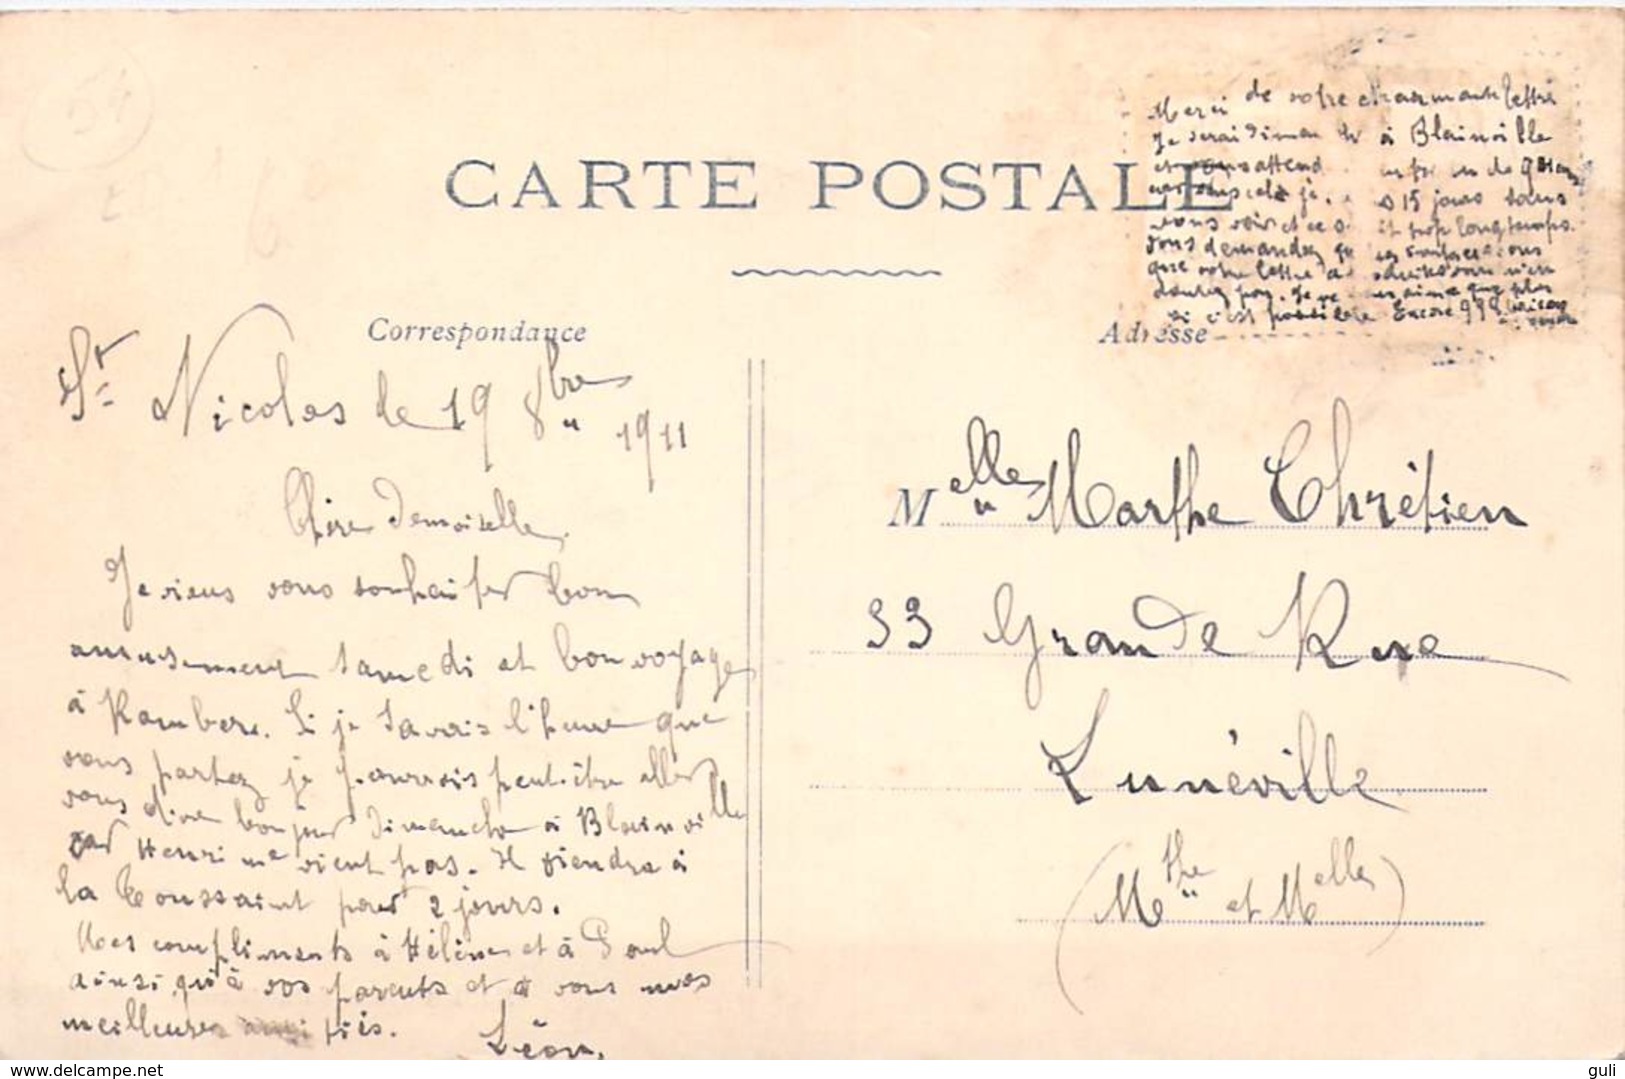 54
CARTE POSTALE
Merci de votre charmante lettre
Je serai dimanche à Blainville
et vous attend
je 15 jours sans
vous voir et ce trop longtemps.
vous demandez
que votre lettre
doutez pas. Je vous aime que plus
si c'est possible Encore 998
Correspondance
Adresse
St Nicolas le 19 8bre 1911
Chère Demoiselle.
Je viens vous souhaiter bon
amusement samedi et bon voyage
à Rambere. Si je savais l'heure que
vous partez je pourrais peut-être aller
vous dire bonjour Dimanche à Blainville
car Henri ne vient pas. Il viendra à
la Toussaint pour 2 jours.
Mes compliments à Hélène et à Paul
ainsi qu'à vos parents et à vous mes
meilleures amitiés.
Léon.
Melle Marthe Chrétien
33 Grande Rue
Lunéville
(Mthe et Melle)
delcampe.net
guli